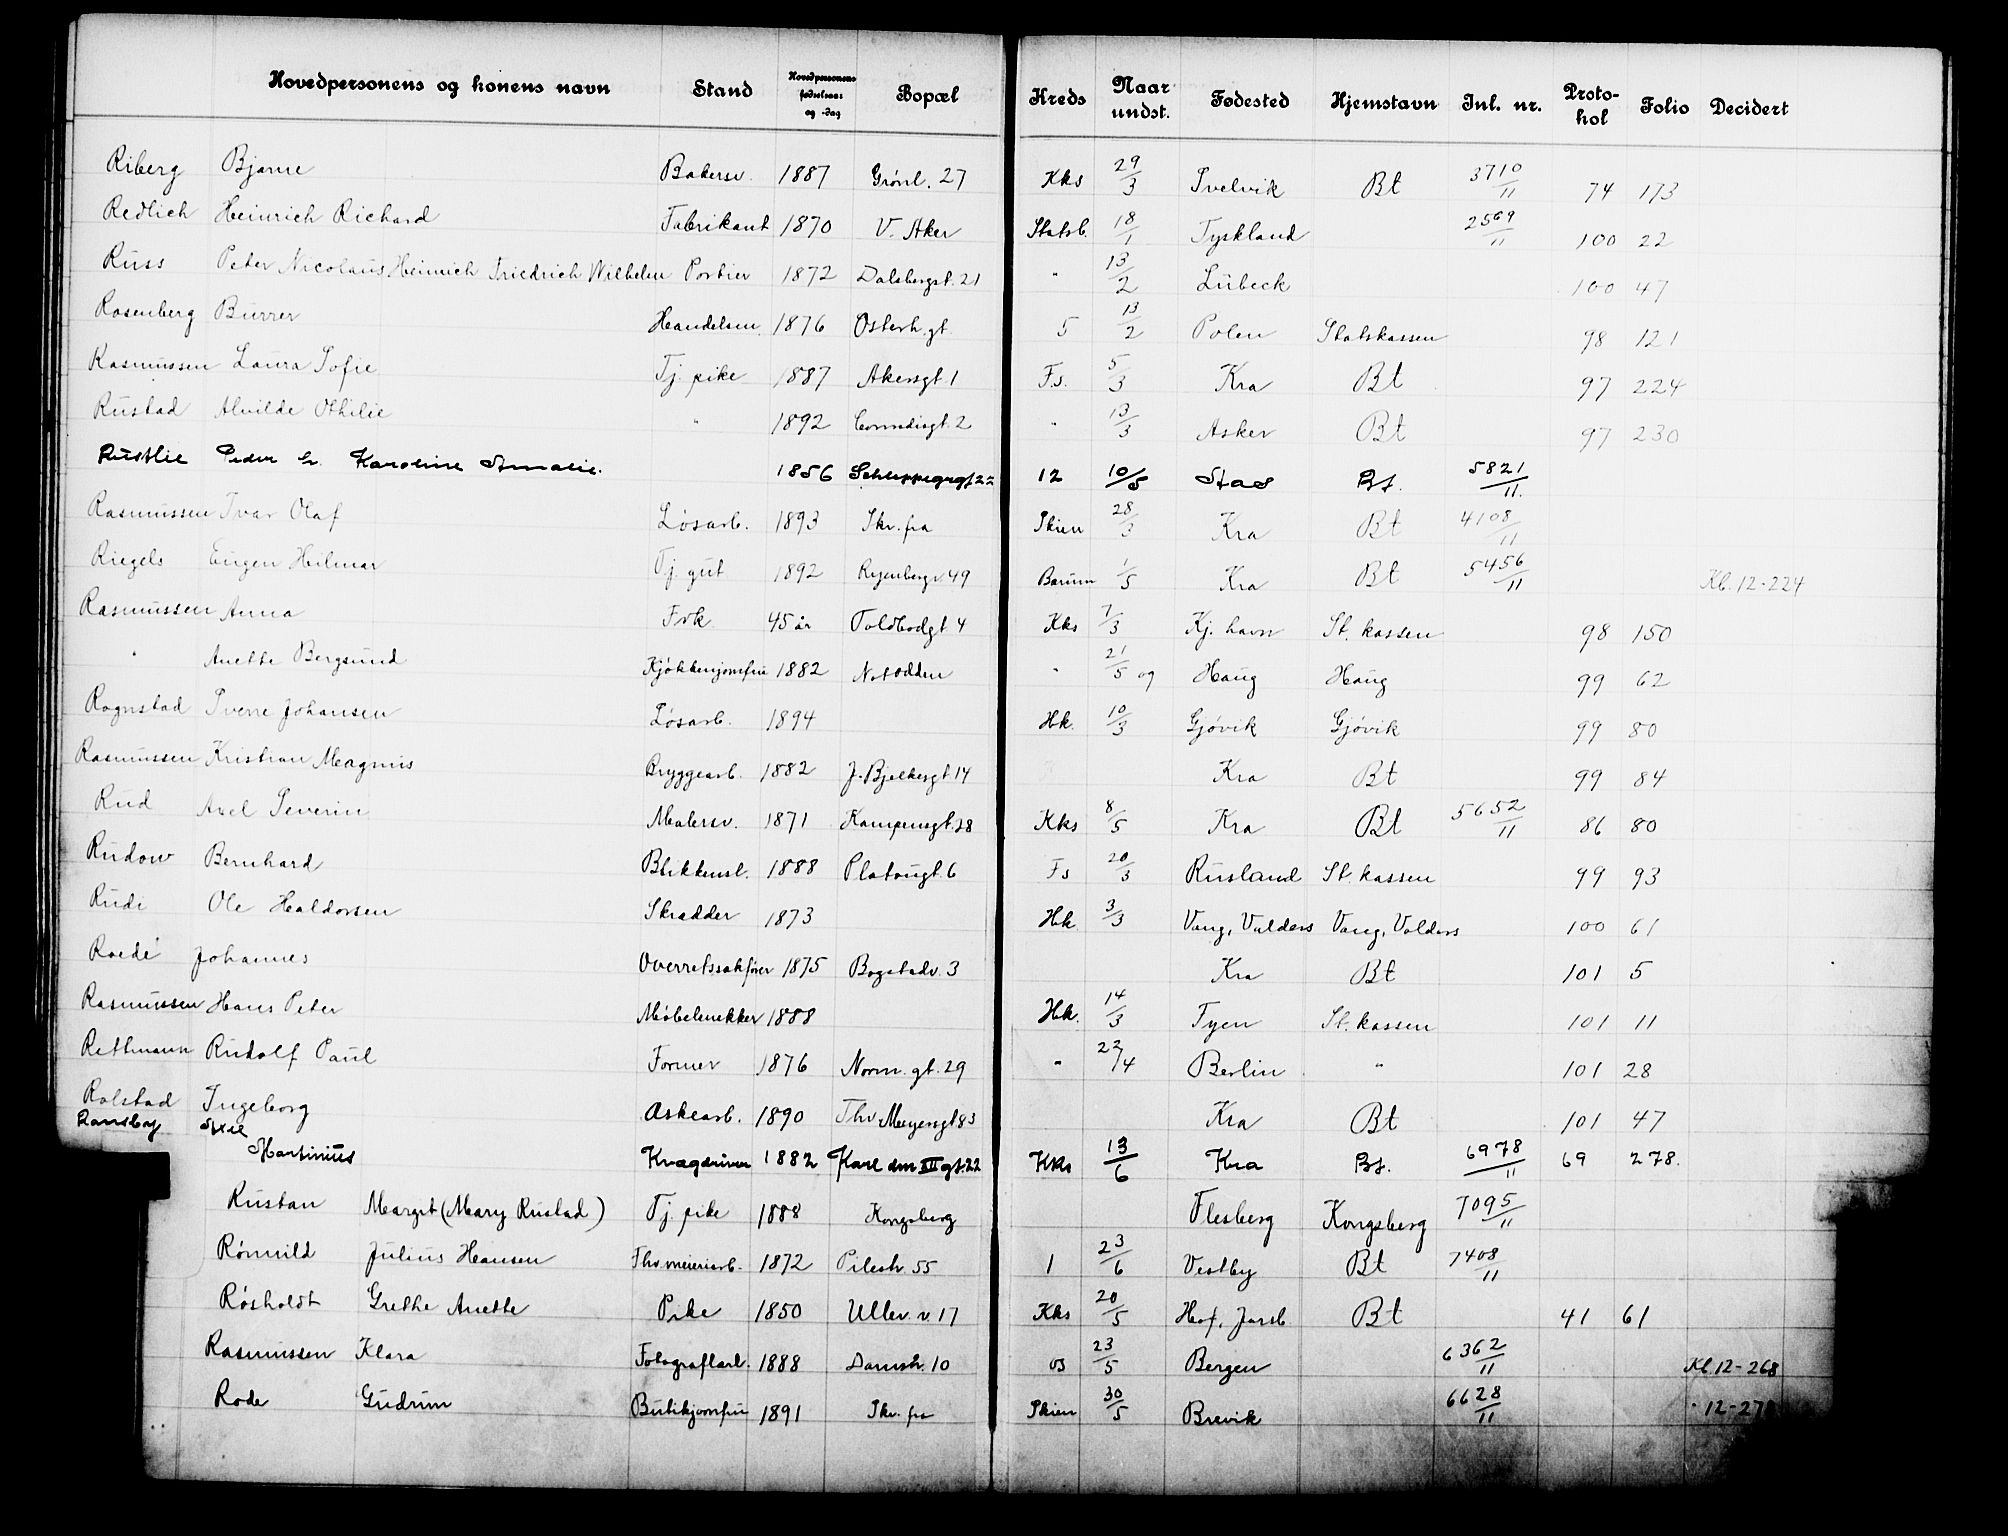 Hovedpersonens og konens navn Stand Hovedpersonens fødselsaar og -dag Bopæl Kreds Naar undst. Fødested Hjemstavn Inl. nr. Protokol Folio Decidert
Riberg Bjarne Bakersv. 1887 Grønl. 27 Kks 29/3 Svelvik Bt 3710/11 74 173
Redlich Heinrich Richard Fabrikant 1870 V. Aker Statsb. 18/1 Tyskland 2569/11 100 22
Russ Peter Nicolaus Heinrich Friedrich Wilhelm Portier 1872 Dalsbergst. 21 " 13/2 Lübeck 100 47
Rosenberg Burrer Handelsm. 1876 Osterh. gt. 5 13/2 Polen Statskassen 98 121
Rasmussen Laura Sofie Tj. pike 1887 Akersgt. 1 Fs. 5/3 Kra Bt 97 224
Rustad Alvilde Othilie " 1892 2 " 13/3 Asker Bt 97 230
Rustlie Peder E. Karoline Amalie. 1856 Schleppegrgt 22 12 10/5 Stod Bt. 5821/11.
Rasmussen Ivar Olaf Løsarb. 1893 Skv. fra Skien 28/3 Kra Bt 4108/11
Riegels Eugen Hilmar Tj. gut 1892 Ryenbergv. 49 Bærum 1/5 Kra Bt 5456/11 Kl. 12-224
Rasmussen Anna Frk 45 år Toldbodgt 4 Kks 7/3 Kj. havn St. kassen 98 150
" Anette Bergsund Kjøkkenjomfru 1882 Notodden " 21/5 og Haug Haug 99 62
Rognstad Sverre Johansen Løsarb. 1894 Hk. 10/3 Gjøvik Gjøvik 99 80
Rasmussen Kristian Magnus Bryggearb. 1882 J. Bjelkesgt. 14 Kra Bt 99 84
Rud Axel Severin Malersv. 1871 Kampensgt. 28 Kks 8/5 Kra Bt 5652/11 86 80
Rudow Bernhard Blikkensl. 1888 Platougt. 6 Fs 20/3 Rusland St. kassen 99 93
Rudi Ole Haldorsen Skrædder 1873 Hk 3/3 Vang, Valders Vang, Valders 100 61
Roede Johannes Overretssakfører 1875 Bogstadv. 3 Kra Bt 101 5
Rasmussen Hans Peter Møbelsnekker 1888 Hk. 14/3 Fyen St. kassen 101 11
Rettmann Rudolf Paul Former 1876 Norm. gt. 29 " 22/4 Berlin " 101 28
Rolstad Ingeborg Æskearb. 1890 Thv Meyersgt 83 Kra Bt 101 47
Ransby Axel
Martinius Kvægdriver 1882 Karl den XII gt. 22 Kks 13/6 Kra Bt. 6978/11 69 278.
Rustan Margit (Mary Rustad) Tj. pike 1888 Kongsberg Flesberg Kongsberg 7095/11
Rømuld Julius Hansen Fhv. meieriarb. 1872 Pilestr. 55 1 23/6 Vestby Bt 7408/11
Røsholdt Grethe Anette Pike 1850 Ullev. v. 17 Kks 20/5 Hof, Jarlsb Bt 41 61
Rasmussen Klara Fotograflærl. 1888 Damstr. 10 os 23/5 Bergen 6362/11 Kl. 12-268
Rode Gudrun Butikjomfru 1891 Skv. fra Skien 30/5 Brevik 6628/11 " 12-27